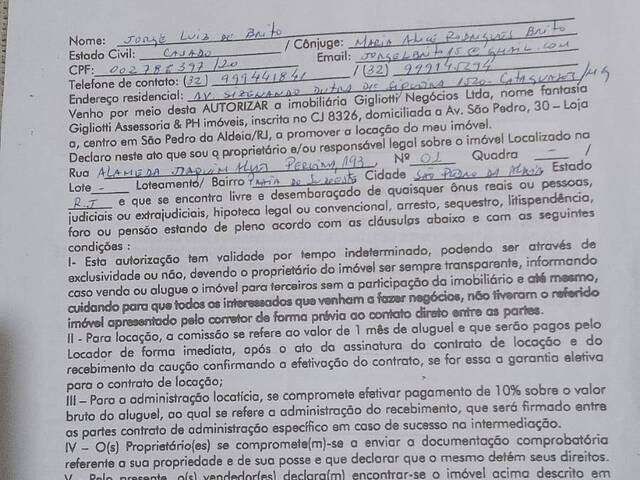 Nome: Jorge Luiz de Brito
Estado Civil: Casado / Cônjuge: Maria Alice Rodrigues Brito
CPF: 002788397/20 Email: jorgelbrito15@gmail.com
Telefone de contato: (32) 999441841 / (32) 999145294
Endereço residencial: Av. Dutra de 1520- Cataguases/MG
Venho por meio desta AUTORIZAR a imobiliária Gigliotti Negócios Ltda, nome fantasia
Gigliotti Assessoria & PH imóveis, inscrita no CJ 8326, domiciliada a Av. São Pedro, 30 – Loja
a, centro em São Pedro da Aldeia/RJ, a promover a locação do meu imóvel.
Declaro neste ato que sou o proprietário e/ou responsável legal sobre o imóvel Localizado na
Rua Alameda Joaquim Pereira, 193, Nº 01 Quadra - /
Lote - Loteamento/ Bairro Praia do Sudoeste Cidade São Pedro da Aldeia Estado
R.J e que se encontra livre e desembaraçado de quaisquer ônus reais ou pessoas,
judiciais ou extrajudiciais, hipoteca legal ou convencional, arresto, sequestro, litispendência,
foro ou pensão estando de pleno acordo com as cláusulas abaixo e com as seguintes
condições :
I- Esta autorização tem validade por tempo indeterminado, podendo ser através de
exclusividade ou não, devendo o proprietário do imóvel ser sempre transparente, informando
caso venda ou alugue o imóvel para terceiros sem a participação da imobiliário e até mesmo,
cuidando para que todos os interessados que venham a fazer negócios, não tiveram o referido
imóvel apresentado pelo corretor de forma prévia ao contato direto entre as partes.
II - Para locação, a comissão se refere ao valor de 1 mês de aluguel e que serão pagos pelo
Locador de forma imediata, após o ato da assinatura do contrato de locação e do
recebimento da caução confirmando a efetivação do contrato, se for essa a garantia eletiva
para o contrato de locação;
III – Para a administração locatícia, se compromete efetivar pagamento de 10% sobre o valor
bruto do aluguel, ao qual se refere a administração do recebimento, que será firmado entre
as partes contrato de administração específico em caso de sucesso na intermediação.
IV – O(s) Proprietário(es) se compromete(m)-se a enviar a documentação comprobatória
referente a sua propriedade e de sua posse e que declarar que o mesmo detém seus direitos.
V - Pelo presente, o(s) vendedor(es) declara(m) encontrar-se o imóvel acima descrito em